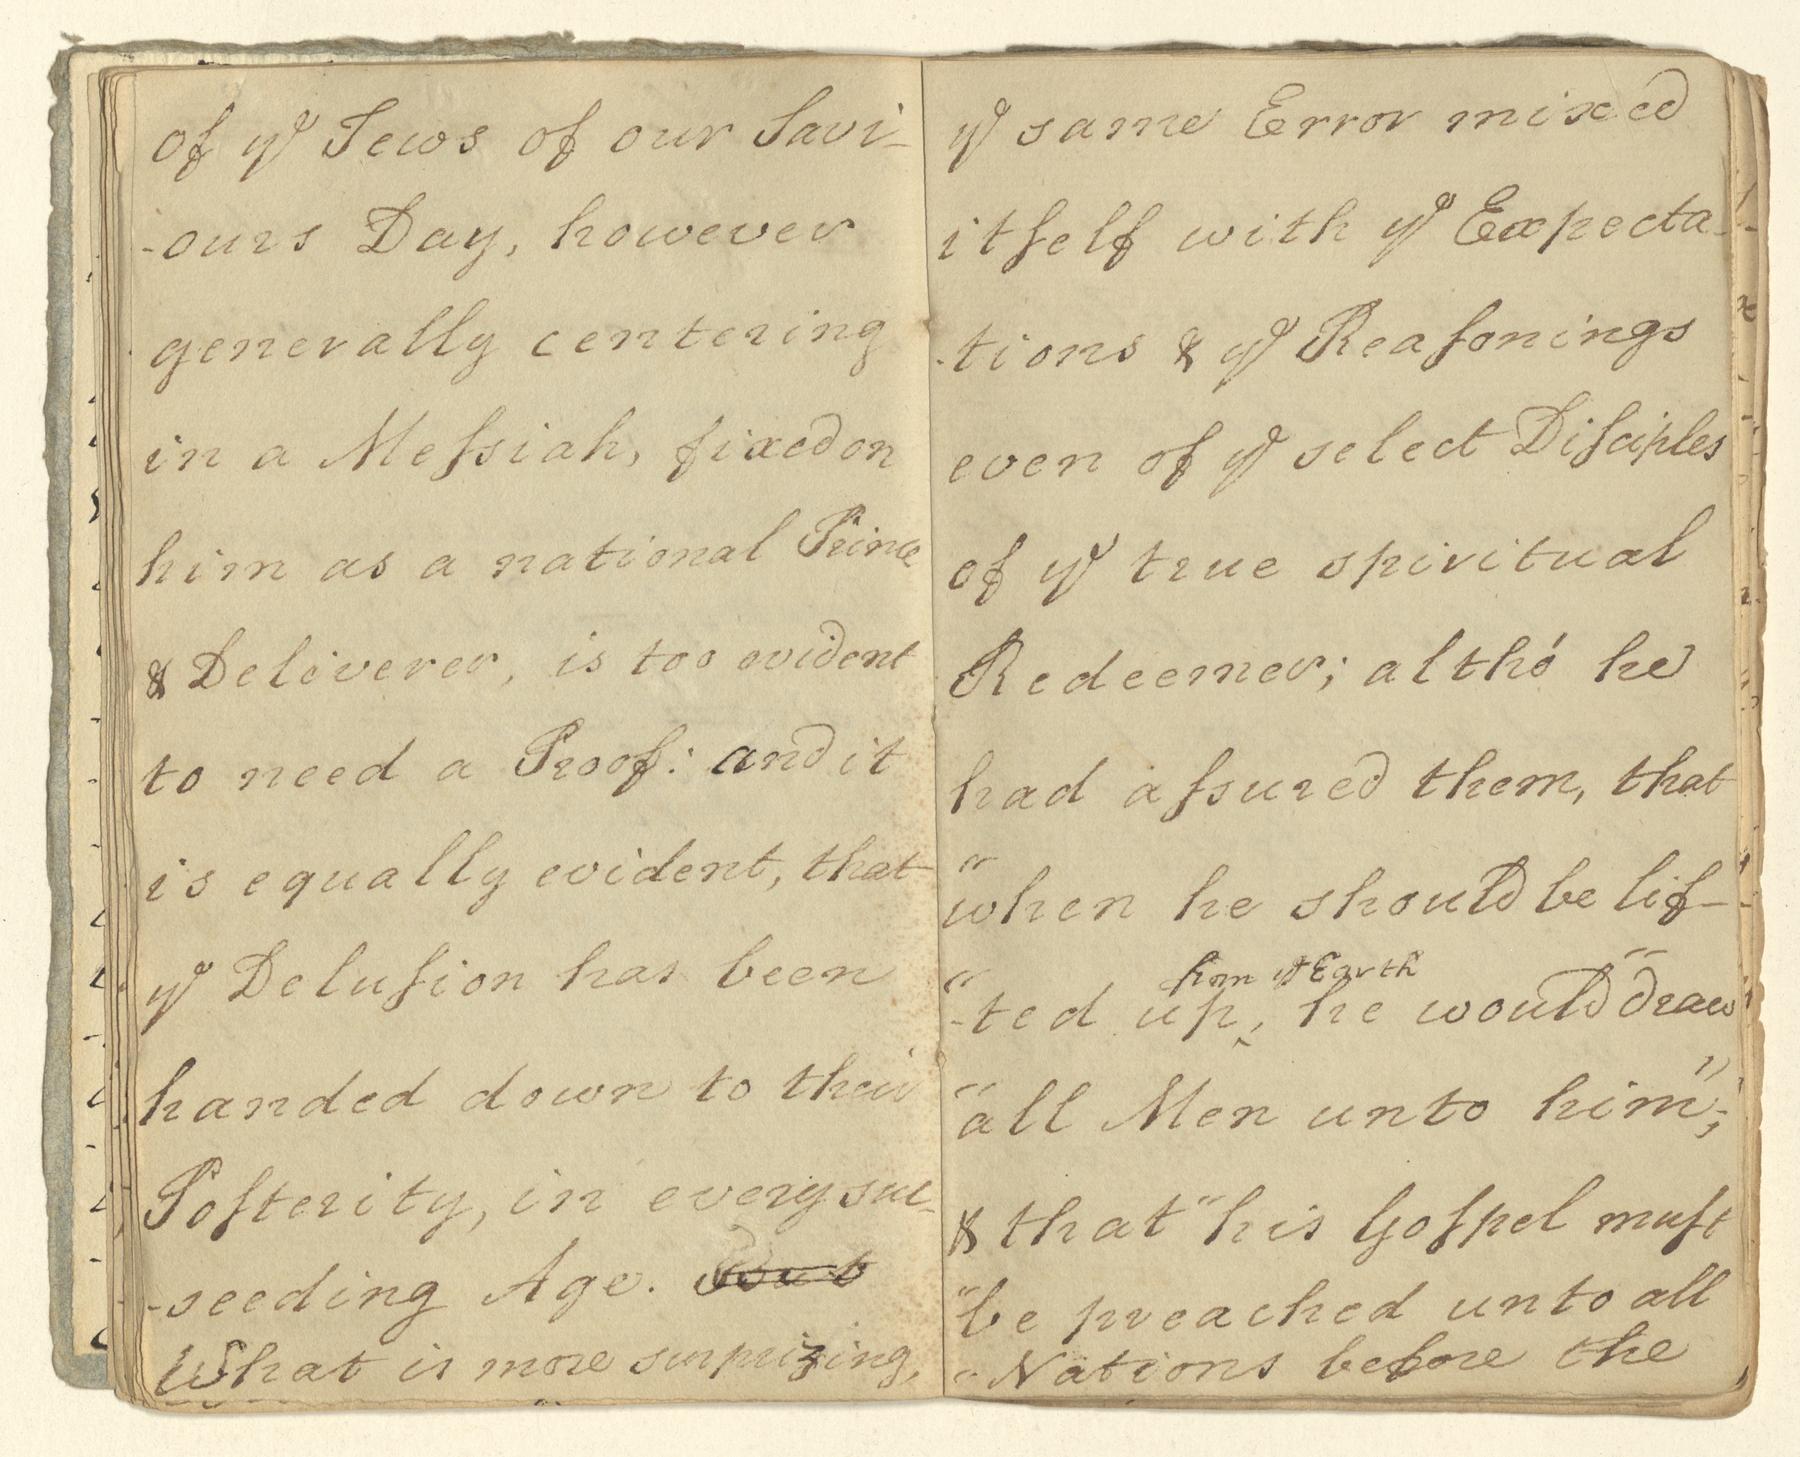 of yͤ Jews of our Savi-
-ours Day, however
generally centering
in a Meſsiah, fixed on
him as a national Prince
& Deliverer, is too evident
to need a Proof: and it
is equally evident, that
yͤ Deluſion has been
handed down to their
Poſterity, in every suc-
-seeding Age. But
What is more surprizing,
yͤ same Error mixed
itſelf with yͤ Expecta-
-tions & yͤ Reaſonings
even of yͤ select Diſciples
of yͤ true spiritual
Redeemer; altho' he
had aſsured them, that
"when he should be lif-
from yͤ Earth
"-ted up‸, he would "draw
"all Men unto him";
& that "his Goſpel muſt
"be preached unto all
"Nations before the